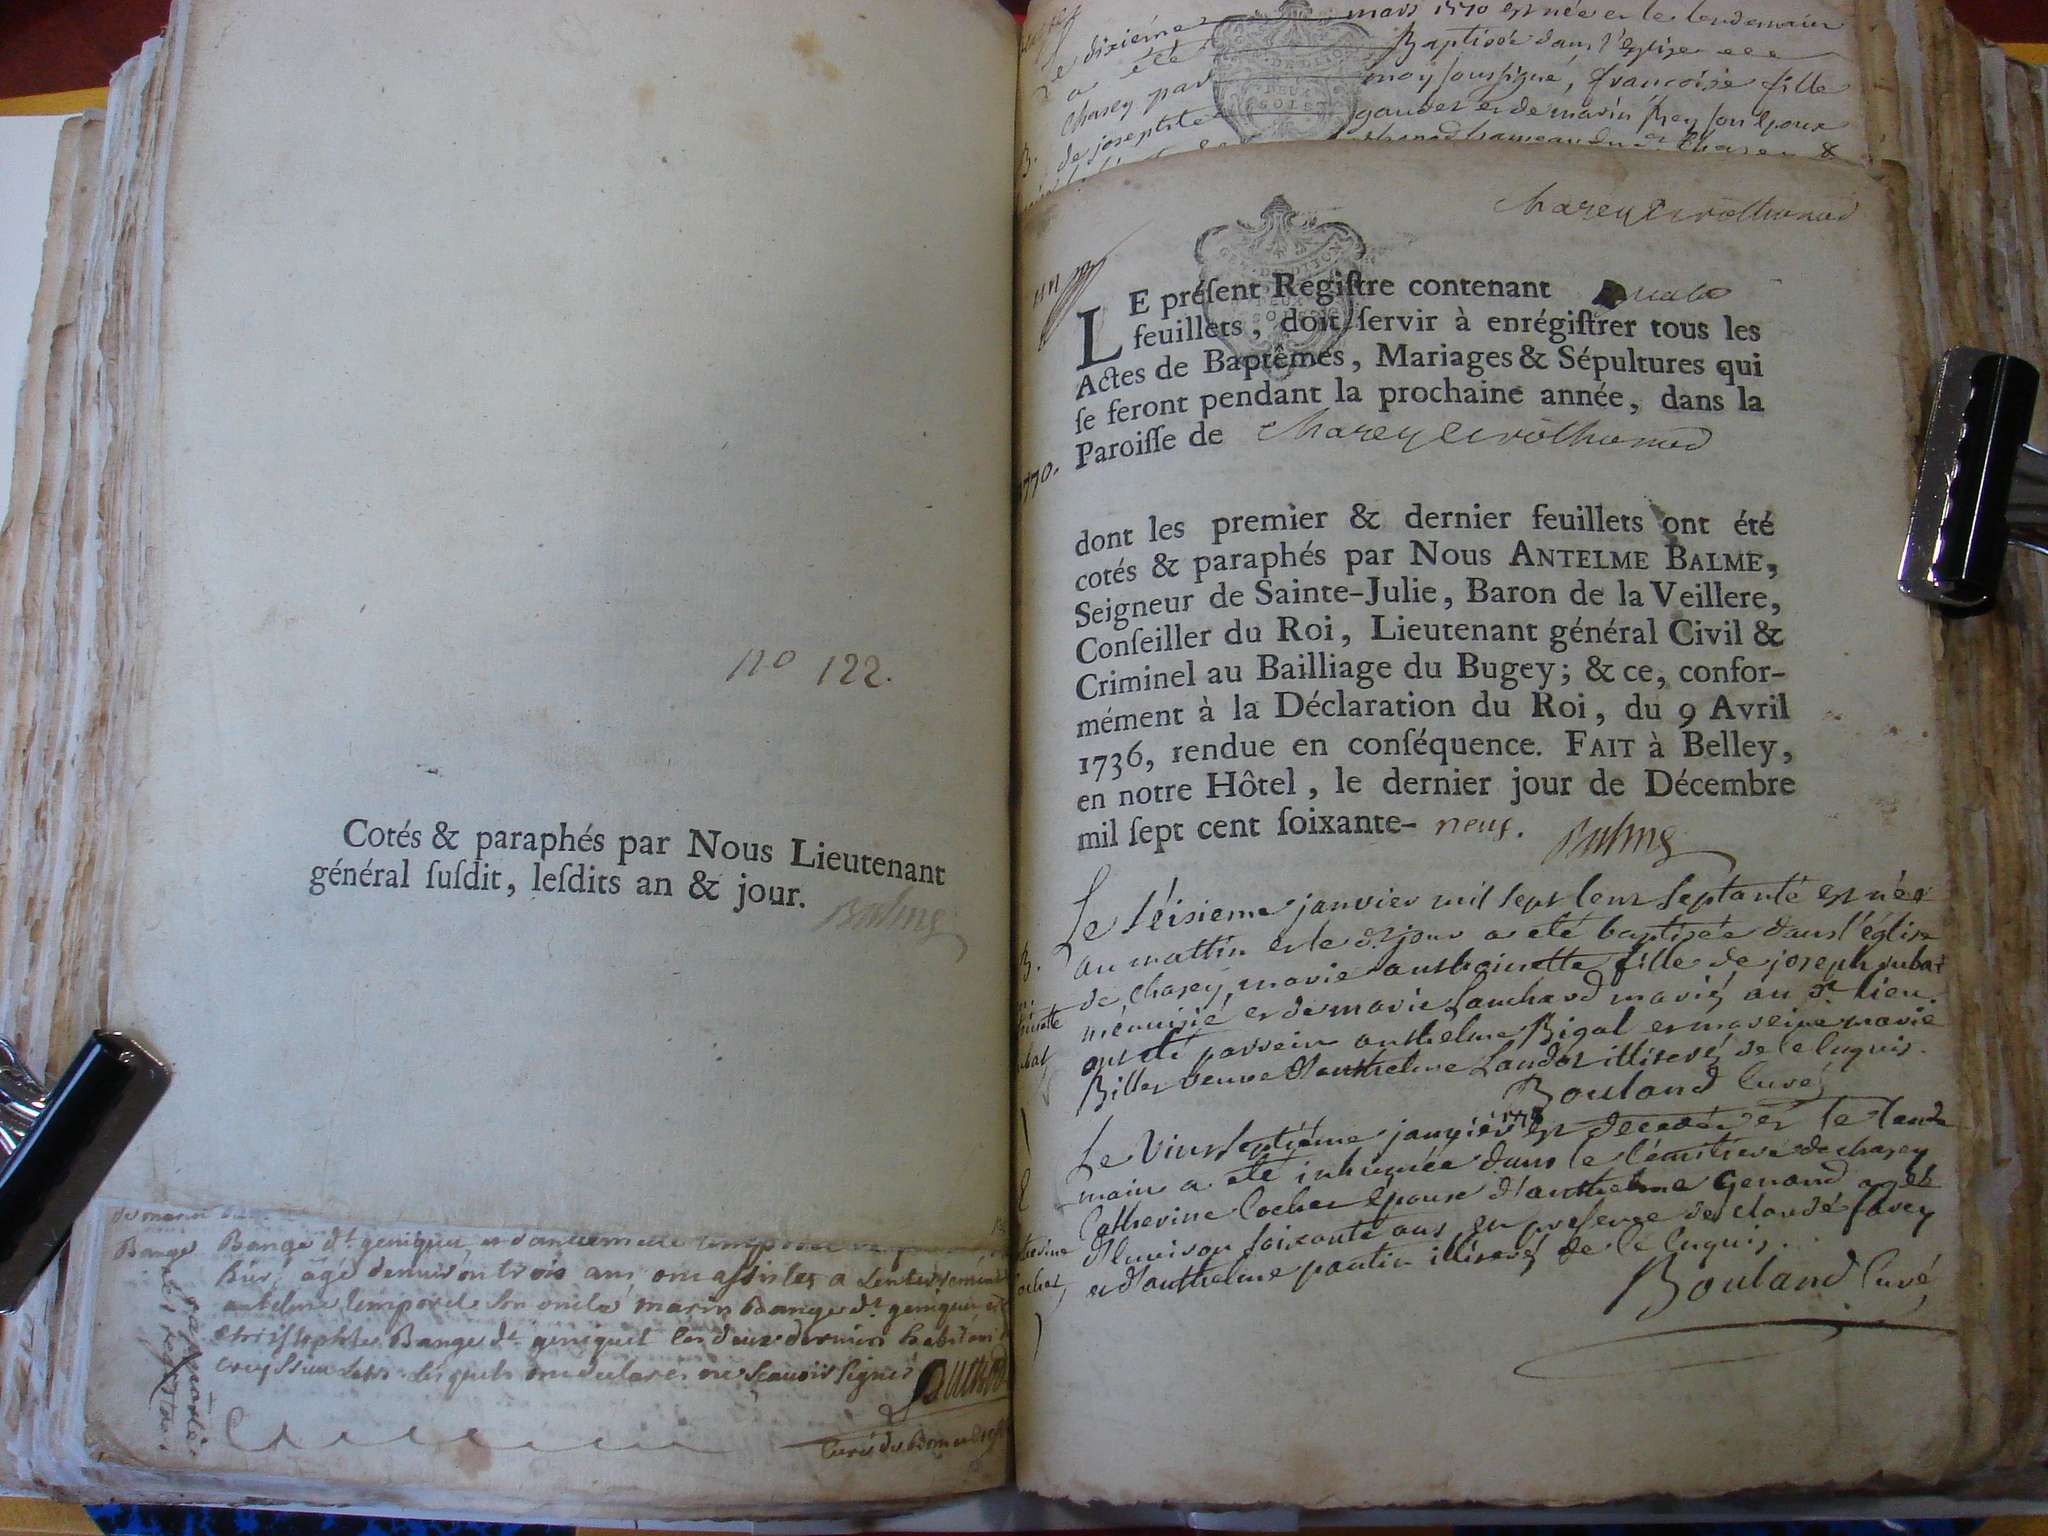 no 122.
Cotés & paraphés par Nous Lieutenant
général ſuſdit, leſdits an & jour. Balme
Bange dt geniquet
âgé denviron trois ans ont assistes a Lenterrement
antelme son oncle marin Bange dt geniquet et
christophle Bange dt geniquet les deux derniers
ne scavoir signer
curé de
dixiéme mars 1770 est née et le lendemain
a été Baptisée dans l'église
Chasey par moy soussigné, françoise fille
de josephte gaudet et de marin frey son epoux
Chasey & rothonod
un
LE préſent Regiſtre contenant quatre
feuillets, doit ſervir à enrégiſtrer tous les
Actes de Baptêmes, Mariages & Sépultures qui
ſe feront pendant la prochaine année, dans la
Paroiſſe de Chasey & rothonod
1770.
dont les premier & dernier feuillets ont été
cotés & paraphés par Nous ANTELME BALME,
Seigneur de Sainte-Julie, Baron de la Veillere,
Conſeiller du Roi, Lieutenant général Civil &
Criminel au Bailliage du Bugey; & ce, confor-
mément à la Déclaration du Roi, du 9 Avril
1736, rendue en conſéquence. FAIT à Belley,
en notre Hôtel, le dernier jour de Décembre
mil ſept cent ſoixante- neuf. Balme
Le séisieme janvier mil sept cent septante est née
au mattin et le dt jour a eté baptisée dans l'église
de chasey, marie anthoinette fille de joseph rubat
et de marie Lauchard mariés au dt lieu.
ont été parrein anthelme Bigal et mareine marie
Billet veuve d'anthelme Landot illiterés de ce enquis.
Bouland Curé
Le vint septiéme janvier 1770 est decedée et le lende
main a eté inhumée dans le cémitiere de chasey
Catherine Cochet épouse d'anthelme Genand agée
d'environ soixante ans en presence de claude favey
et d'anthelme pantin illiterés de ce enquis.
Bouland Curé